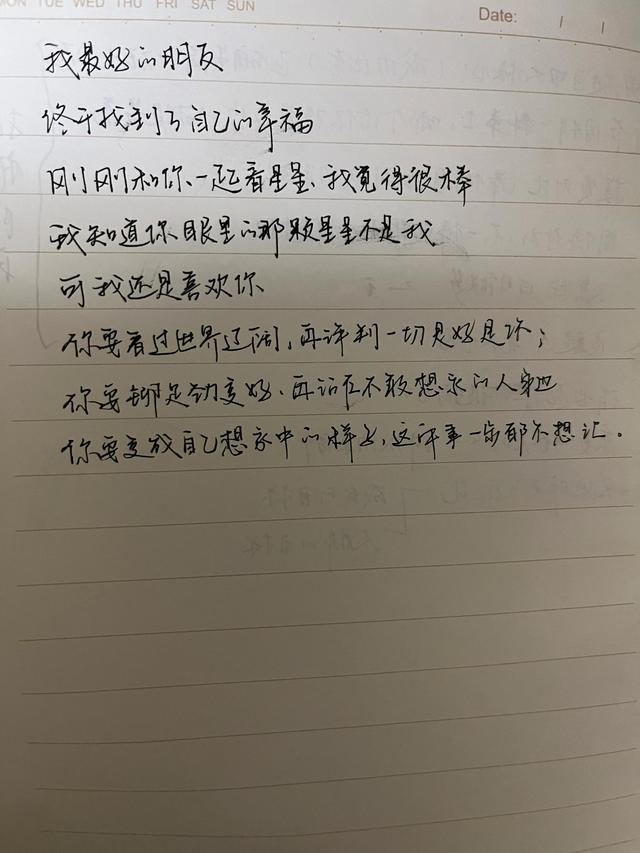 MON TUE WED THU FRI SAT SUN
Date: / /
我最好的朋友
终于找到了自己的幸福
刚刚和你一起看星星、我觉得很棒
我知道你眼里的那颗星星不是我
可我还是喜欢你
你要看过世界辽阔，再评判一切是好是坏；
你要铆足劲变好、再站在不敢想象的人身边
你要变成自己想象中的样子，这件事一步都不想让。